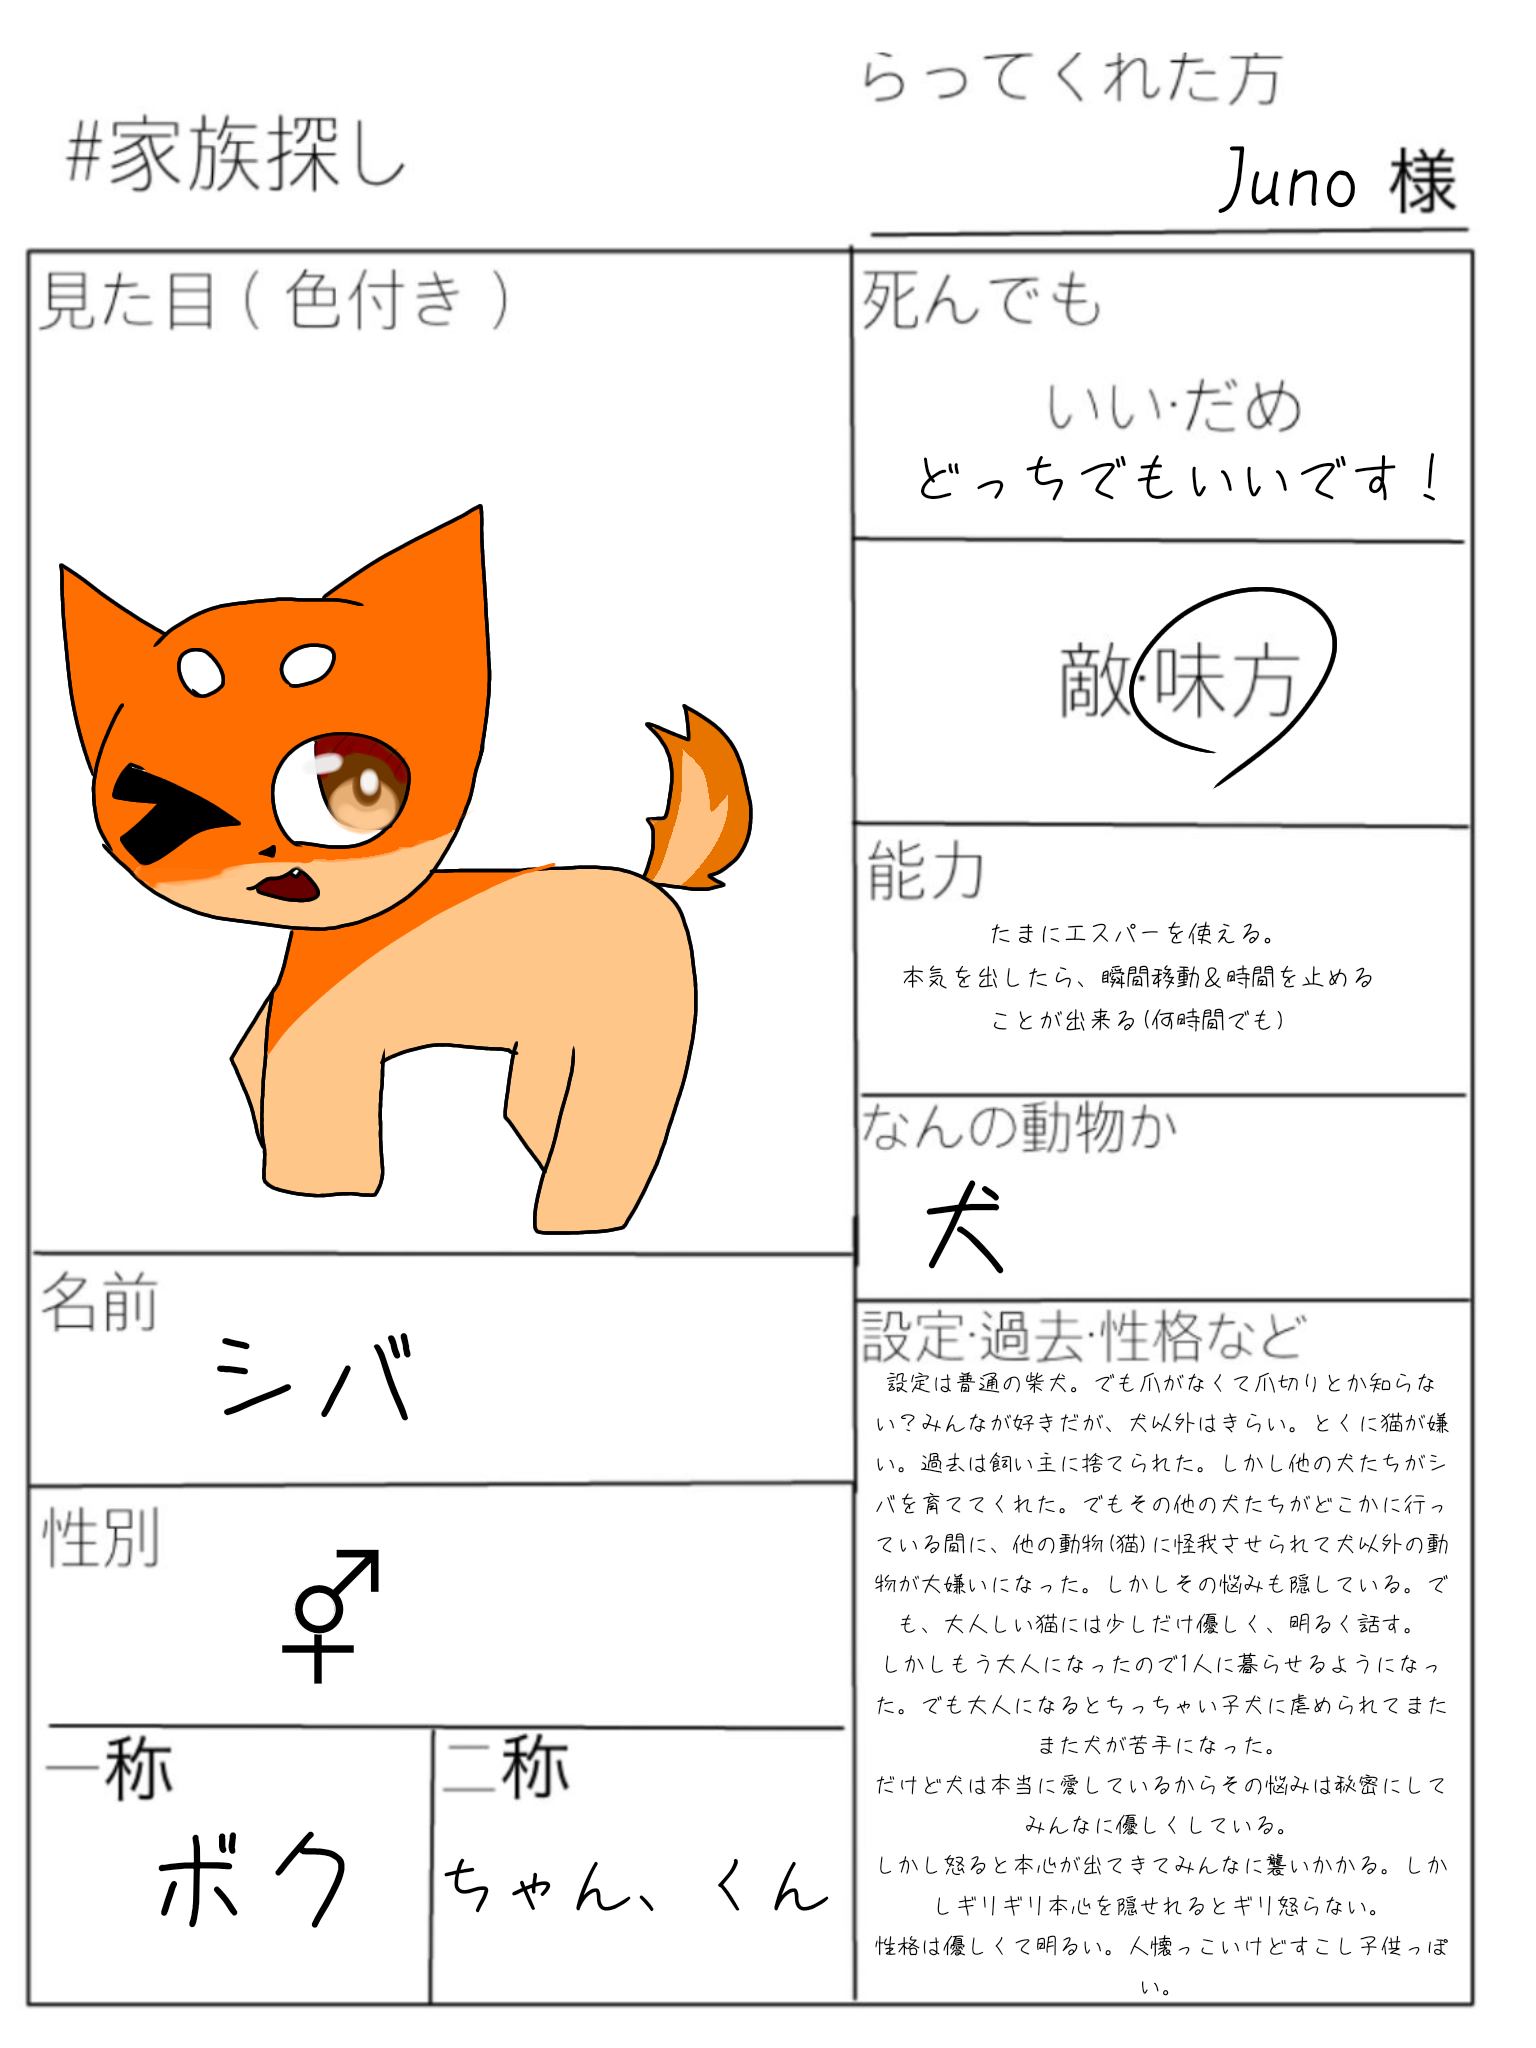 らってくれた方
#家族探し
Juno 様
見た目(色付き)
死んでも
いい·だめ
どっちでもいいです!
敵·味方
能力
たまにエスパーを使える。
本気を出したら、瞬間移動&時間を止める
ことが出来る(何時間でも)
なんの動物か
犬
名前
シバ
性別
⚥
一称
ボク
二称
ちゃん、くん
設定·過去·性格など
設定は普通の柴犬。でも爪がなくて爪切りとか知らな
い?みんなが好きだが、犬以外はきらい。とくに猫が嫌
い。過去は飼い主に捨てられた。しかし他の犬たちがシ
バを育ててくれた。でもその他の犬たちがどこかに行っ
ている間に、他の動物(猫)に怪我させられて犬以外の動
物が大嫌いになった。しかしその悩みも隠している。で
も、大人しい猫には少しだけ優しく、明るく話す。
しかしもう大人になったので1人に暮らせるようになっ
た。でも大人になるとちっちゃい子犬に虐められてまた
また犬が苦手になった。
だけど犬は本当に愛しているからその悩みは秘密にして
みんなに優しくしている。
しかし怒ると本心が出てきてみんなに襲いかかる。しか
しギリギリ本心を隠せれるとギリ怒らない。
性格は優しくて明るい。人懐っこいけどすこし子供っぽ
い。